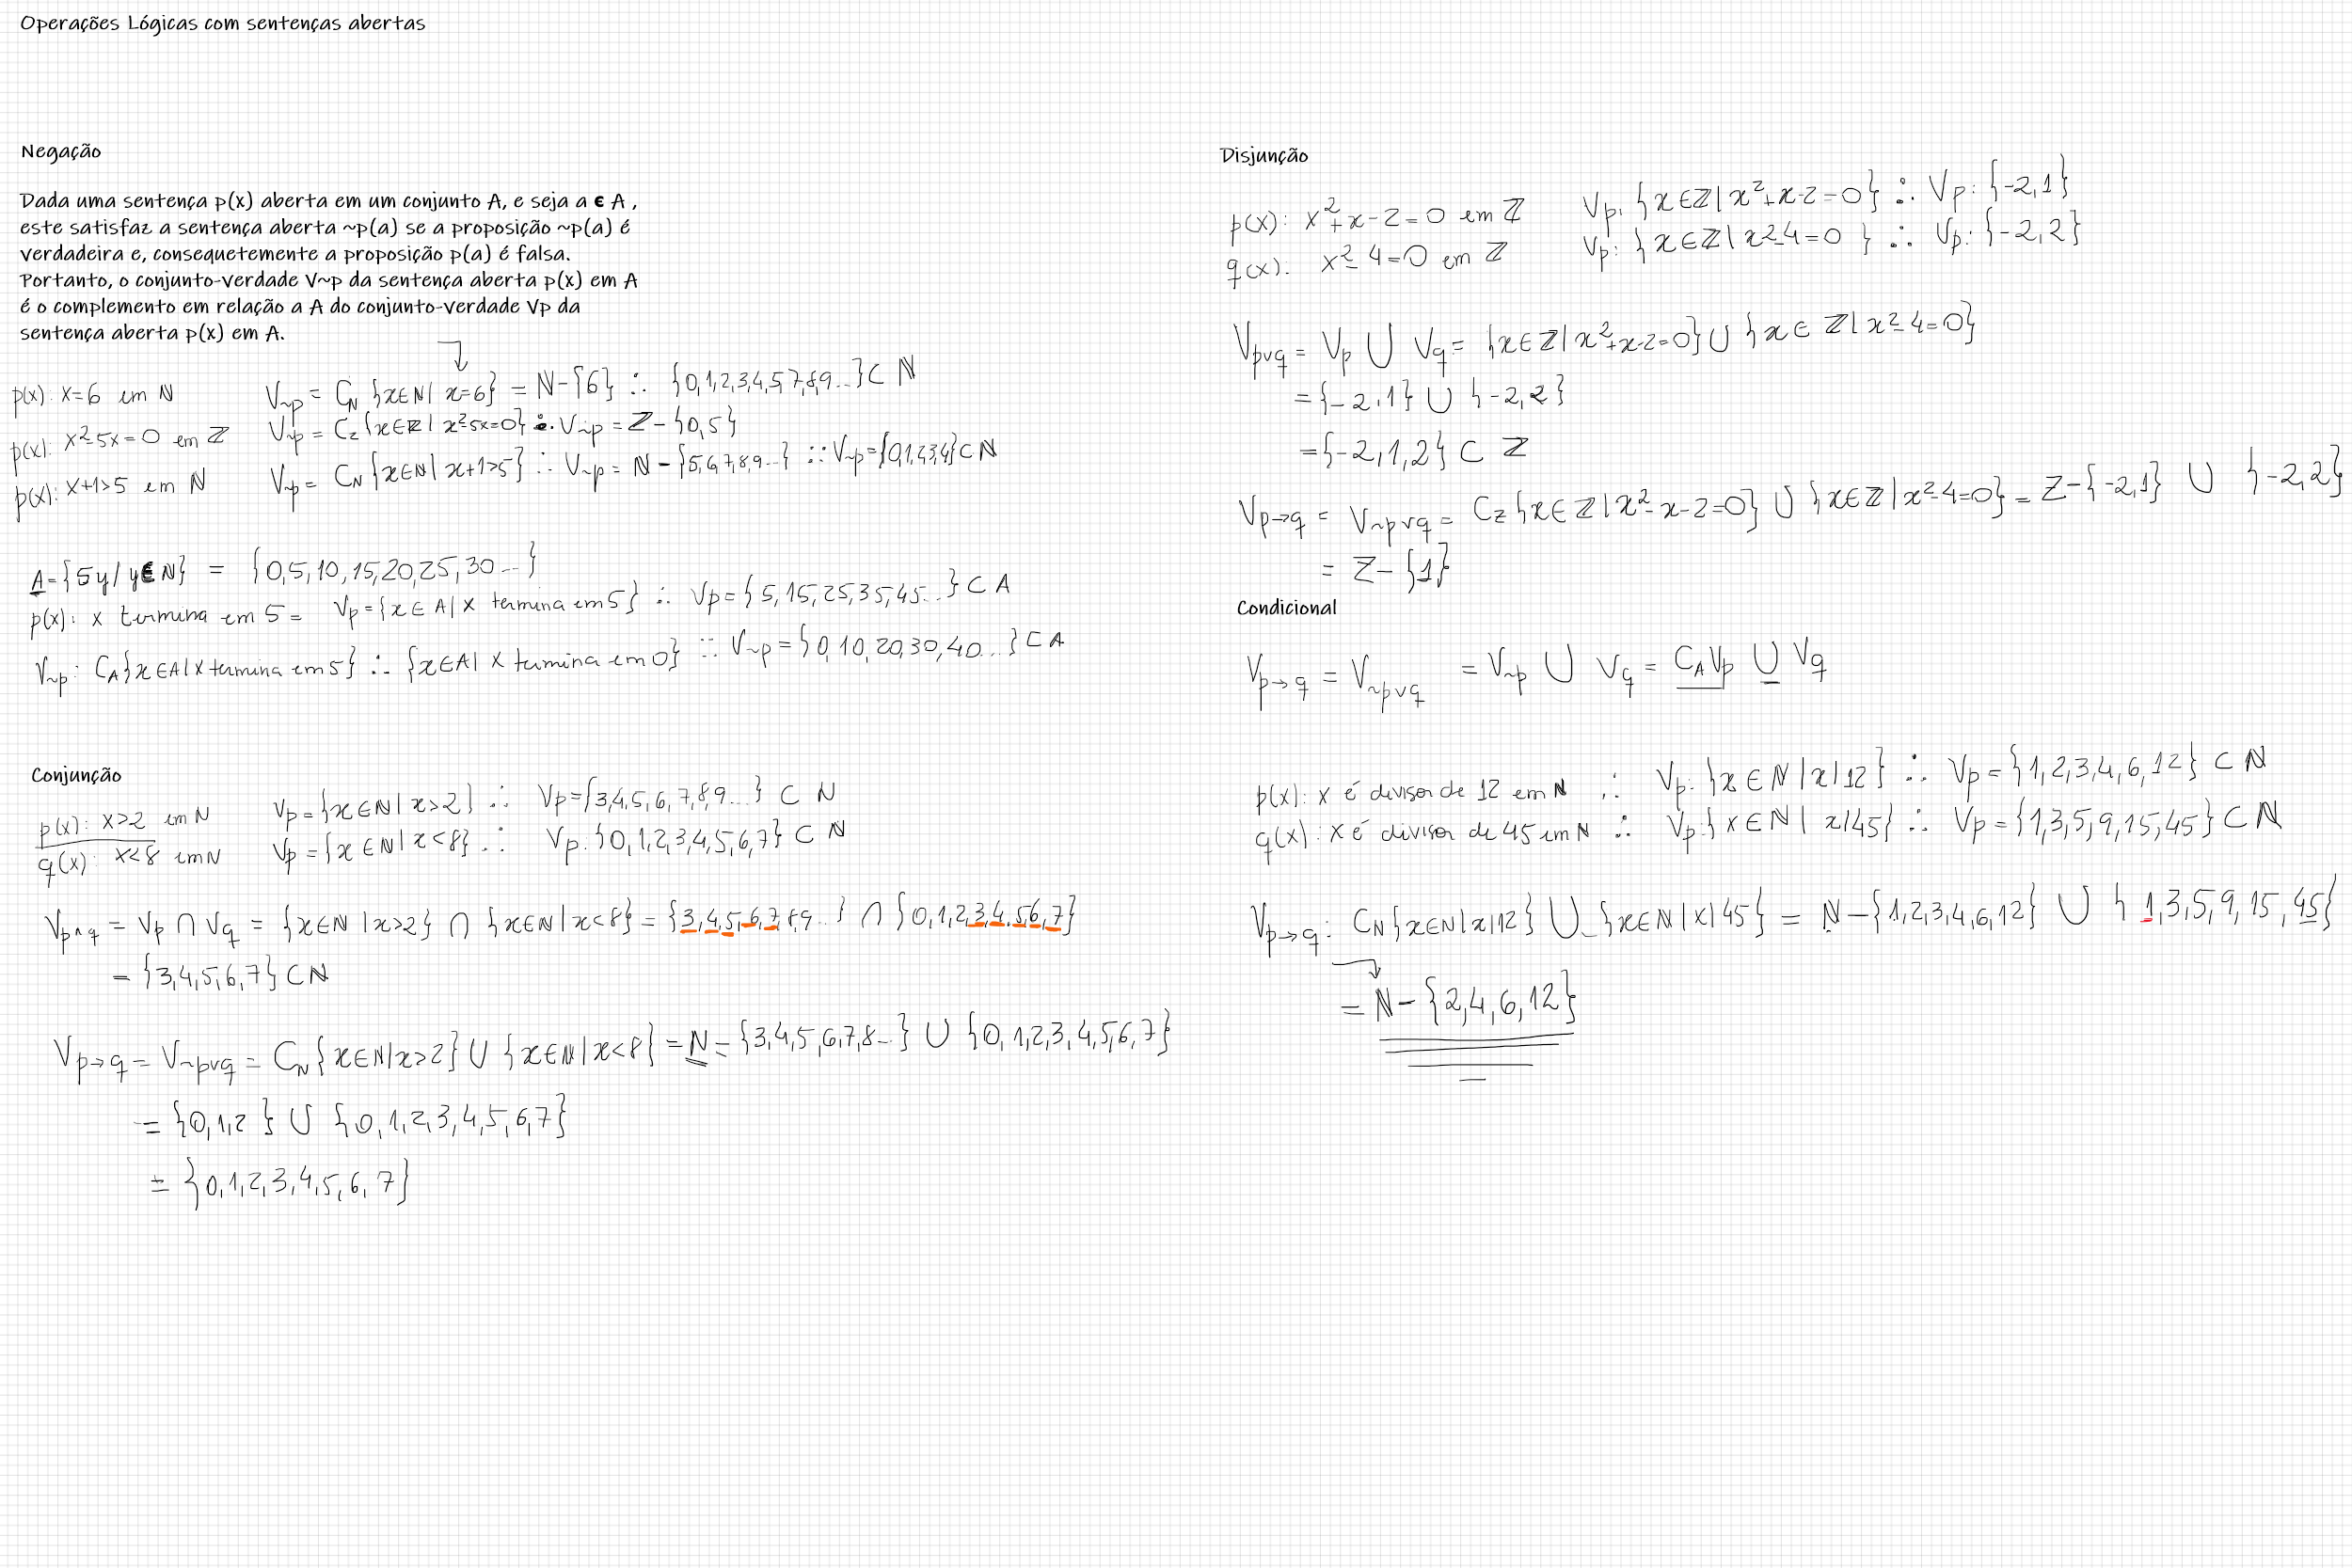 Operações Lógicas com sentenças abertas
Negação
Dada uma sentença p(x) aberta em um conjunto A, e seja a ϵ A ,
este satisfaz a sentença aberta ~p(a) se a proposição ~p(a) é
verdadeira e, consequetemente a proposição p(a) é falsa.
Portanto, o conjunto-verdade V~p da sentença aberta p(x) em A
é o complemento em relação a A do conjunto-verdade Vp da
sentença aberta p(x) em A.
p(x): x=6 em ℕ V~p = Cℕ {x∈ℕ| x=6} = ℕ-{6} ∴ {0,1,2,3,4,5,7,8,9...} ⊂ ℕ
p(x): x²-5x=0 em ℤ V~p = Cz {x∈ℤ| x²-5x=0} ∴ V~p = ℤ-{0,5}
p(x): x+1>5 em ℕ V~p = Cℕ {x∈ℕ| x+1>5} ∴ V~p = ℕ-{5,6,7,8,9...} ∴ V~p={0,1,2,3,4} ⊂ ℕ
A={5y/y∈ℕ} = {0,5,10,15,20,25,30...}
p(x): x termina em 5 = Vp={x∈A| x termina em 5} ∴ Vp={5,15,25,35,45...} ⊂ A
V~p: CA{x∈A| x termina em 5} ∴ {x∈A| x termina em 0} ∴ V~p={0,10,20,30,40...} ⊂ A
Conjunção
p(x): x>2 em ℕ Vp={x∈ℕ| x>2} ∴ Vp={3,4,5,6,7,8,9...} ⊂ ℕ
q(x): x<8 em ℕ Vp={x∈ℕ| x<8} ∴ Vp:{0,1,2,3,4,5,6,7} ⊂ ℕ
Vp∧q = Vp ∩ Vq = {x∈ℕ|x>2} ∩ {x∈ℕ|x<8} = {3,4,5,6,7,8,9...} ∩ {0,1,2,3,4,5,6,7}
= {3,4,5,6,7} ⊂ ℕ
Vp→q = V~p∨q = Cℕ{x∈ℕ|x>2} ∪ {x∈ℕ|x<8} = ℕ-{3,4,5,6,7,8...} ∪ {0,1,2,3,4,5,6,7}
= {0,1,2} ∪ {0,1,2,3,4,5,6,7}
= {0,1,2,3,4,5,6,7}
Disjunção
p(x): x²+x-2=0 em ℤ Vp: {x∈ℤ| x²+x-2=0} ∴ Vp: {-2,1}
q(x): x²-4=0 em ℤ Vp: {x∈ℤ| x²-4=0 } ∴ Vp: {-2,2}
Vp∨q = Vp ∪ Vq = {x∈ℤ| x²+x-2=0} ∪ {x∈ℤ| x²-4=0}
= {-2,1} ∪ {-2,2}
= {-2,1,2} ⊂ ℤ
Vp→q = V~p∨q = Cz {x∈ℤ| x²-x-2=0} ∪ {x∈ℤ| x²-4=0} = ℤ-{-2,1} ∪ {-2,2}
= ℤ-{1}
Condicional
Vp→q = V~p∨q = V~p ∪ Vq = CAVp ∪ Vq
p(x): x é divisor de 12 em ℕ ∴ Vp: {x∈ℕ|x|12} ∴ Vp={1,2,3,4,6,12} ⊂ ℕ
q(x): x é divisor de 45 em ℕ ∴ Vp:{x∈ℕ| x/45} ∴ Vp={1,3,5,9,15,45} ⊂ ℕ
Vp→q: Cℕ{x∈ℕ|x|12} ∪ {x∈ℕ|x|45} = ℕ-{1,2,3,4,6,12} ∪ {1,3,5,9,15,45}
= ℕ-{2,4,6,12}